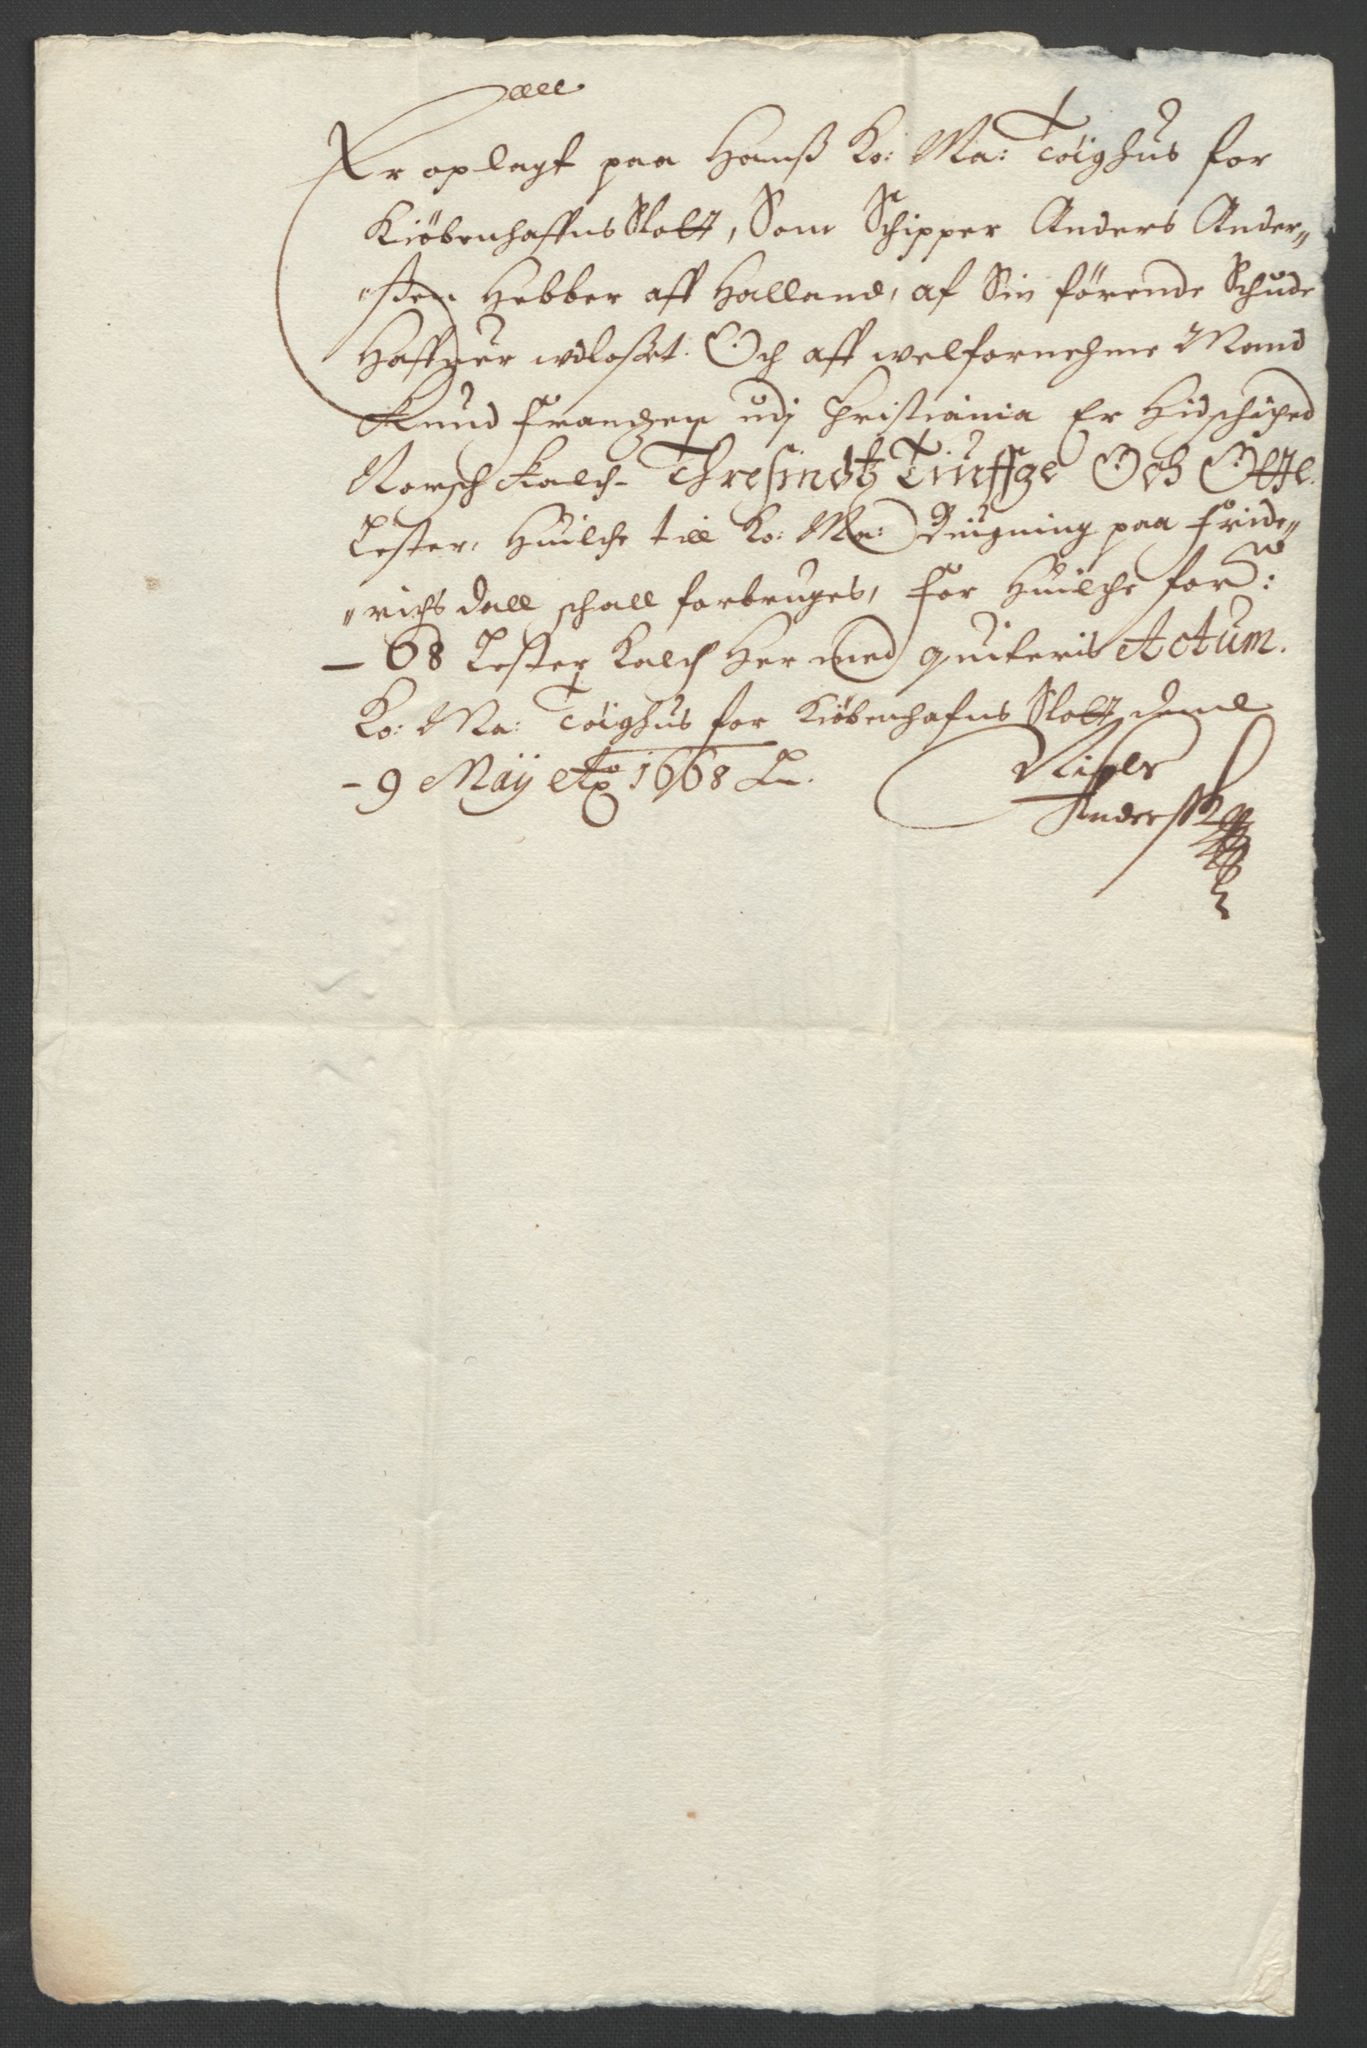 Er oplagt paa Hanß Ko: Ma: Töighus for
Kiöbenhaffns Slott, Som Schipper Anders Ander„
„ßen Hebber aff Halland, af Sin förende Schude
Haffuer udloßet. Och aff welfornehme Mand
Knud Frandzen udj Christiania Er Hidschiped
Norsch Kalch - Thresindtz Tiuffge Och Otte
Lester, Huilche till Ko: Ma: Bügning paa Fride„
„richs dall schall forbruges, For Huilche for:
- 68 Lester Kalch Her med quiteris Actum.
Ko: Ma: Töighus for Kiöbenhafns Slott denn
- 9 Maij Ao 1668
Niels
Anderß